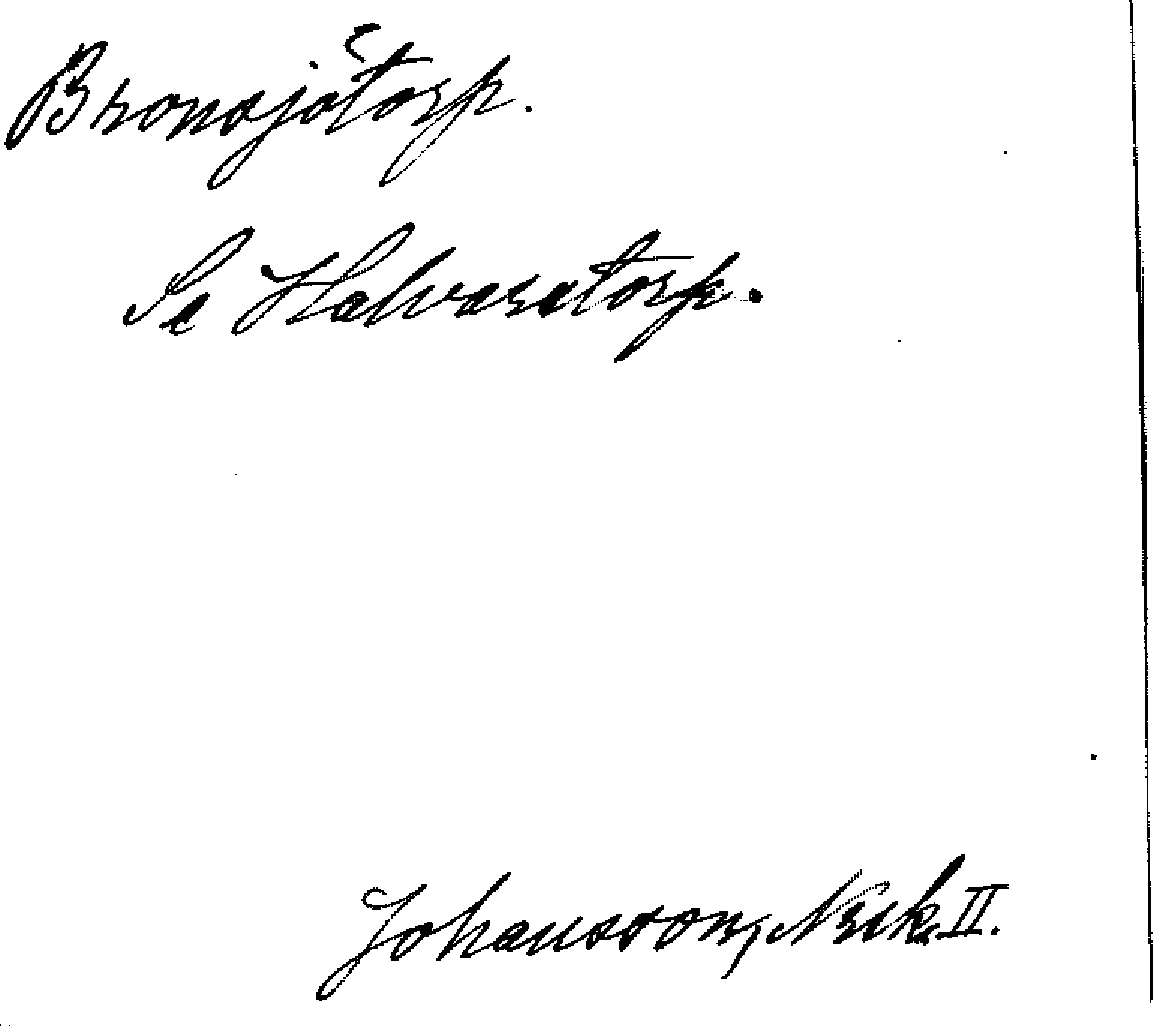 Bronsjötorp.
Se Halvarstorp.
Johansson, Noraskog II.